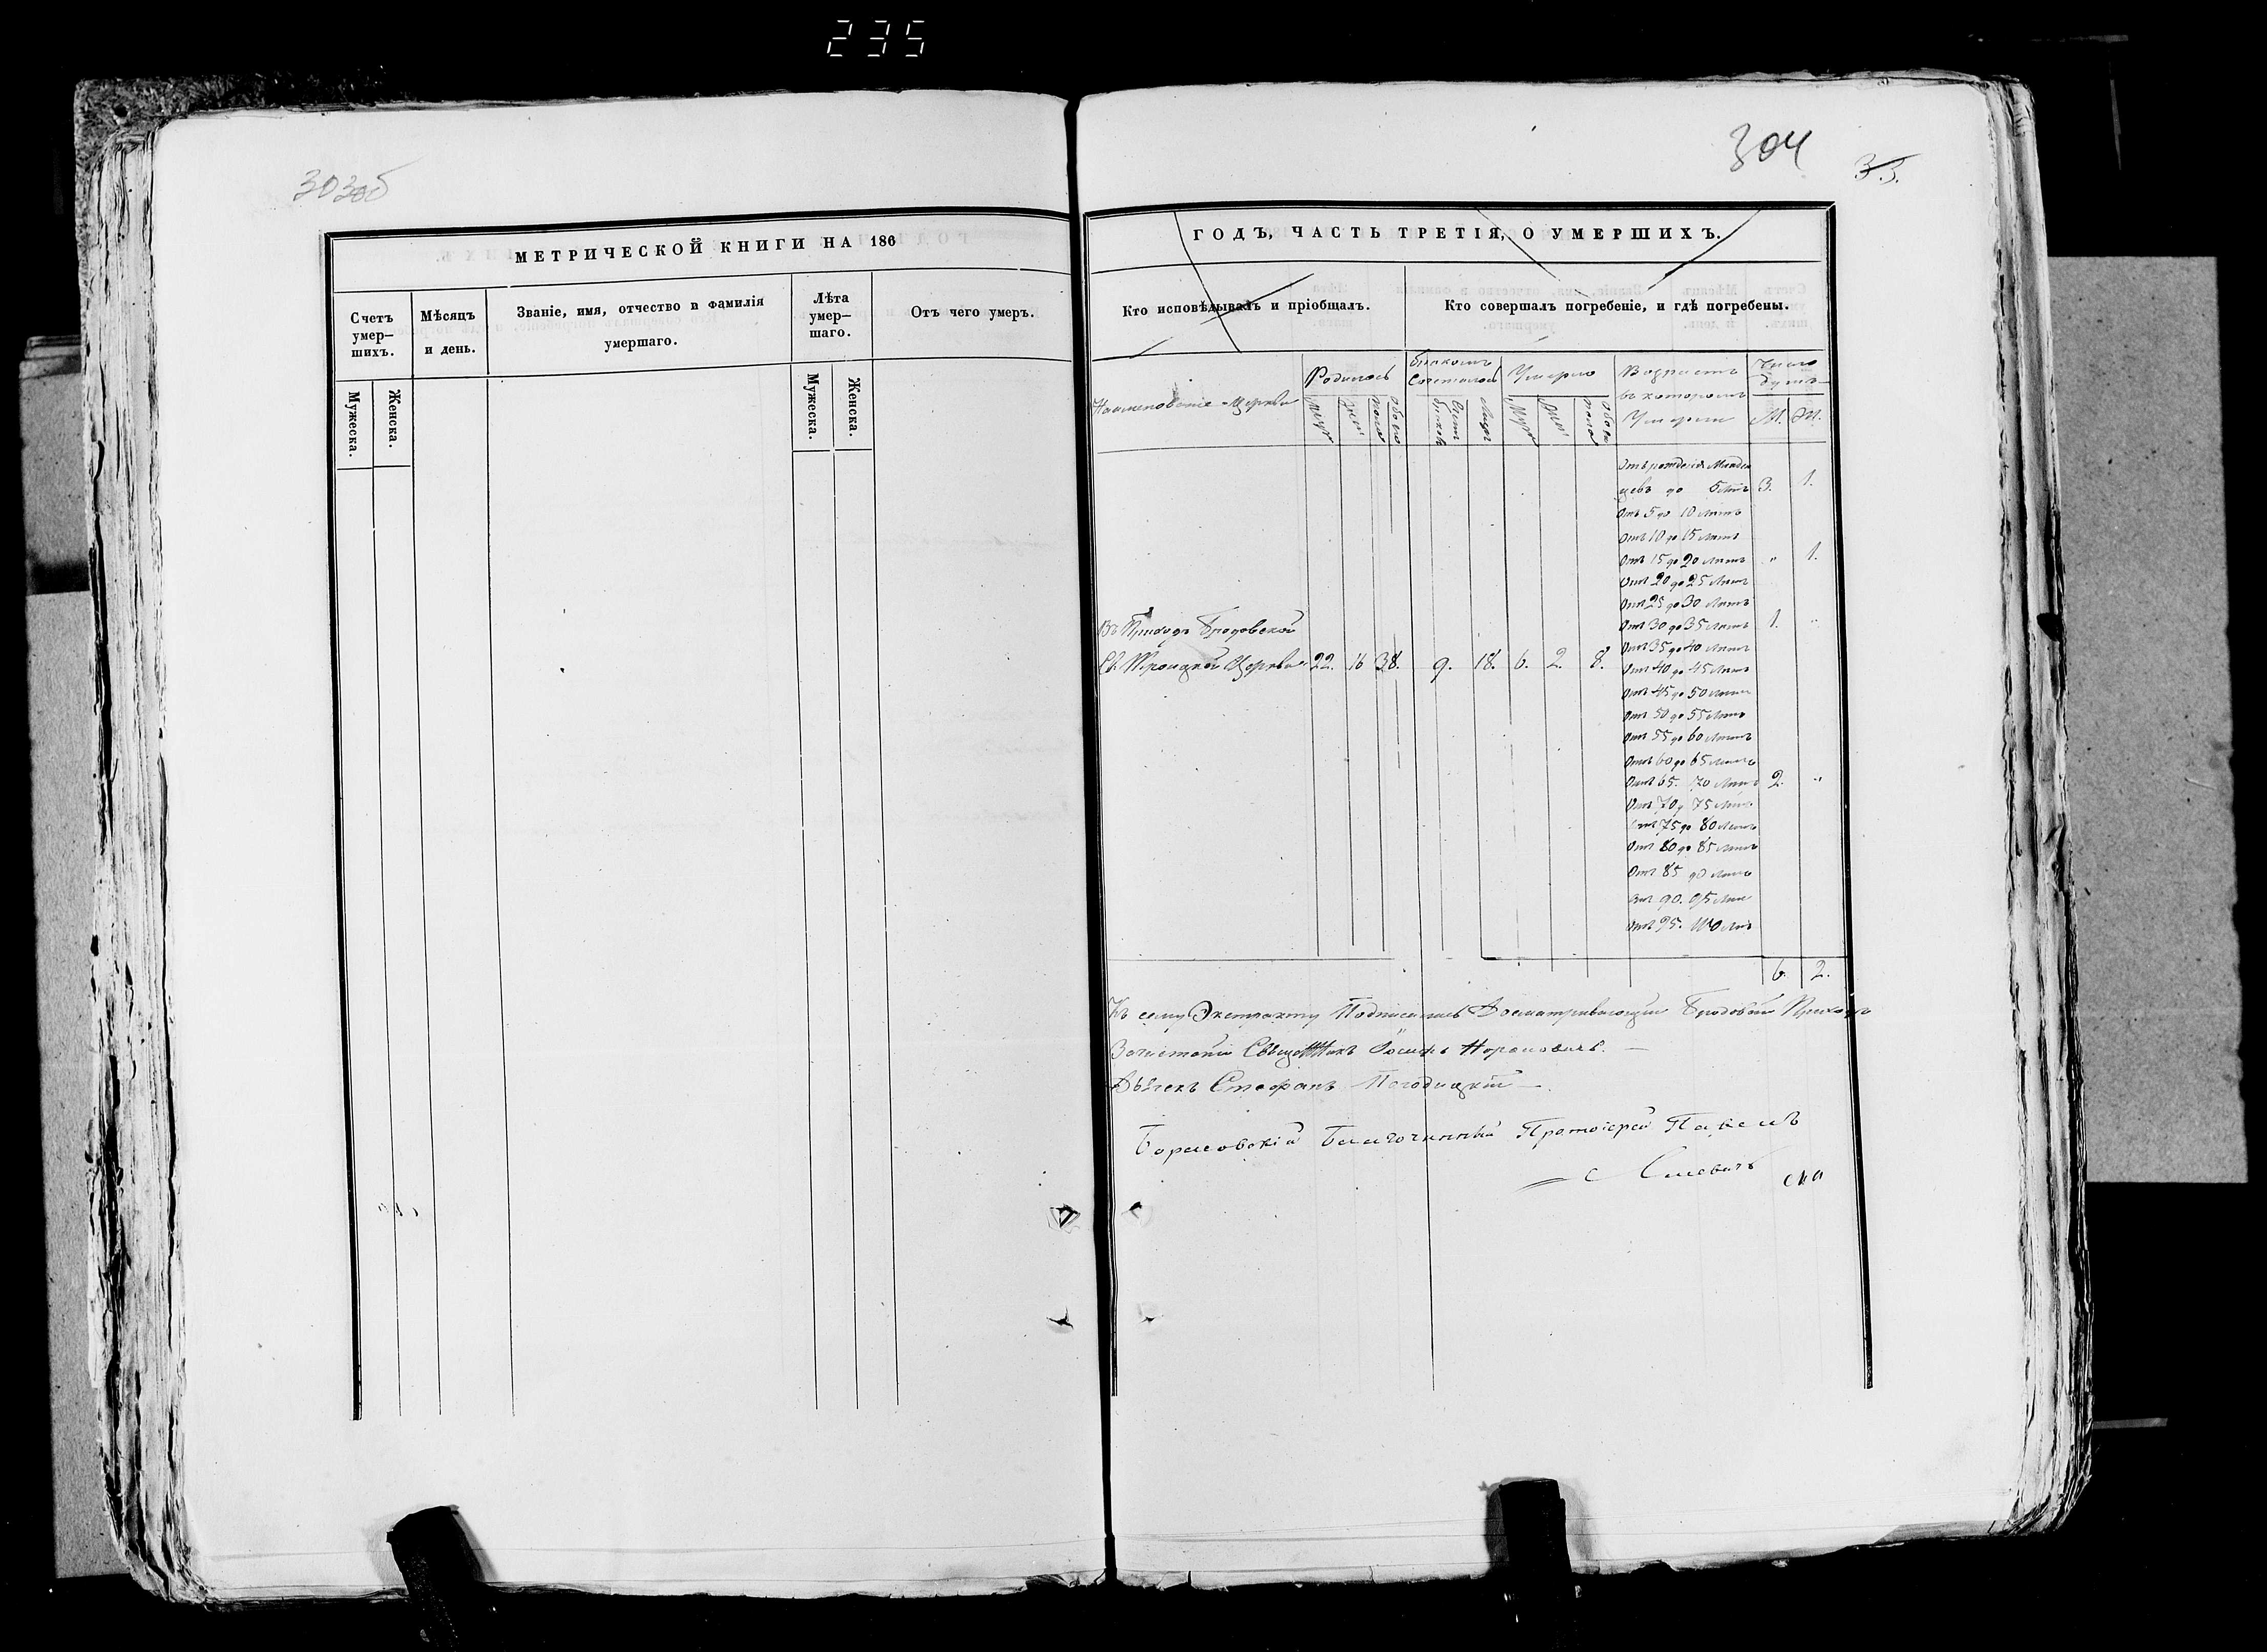 235
303об
304
33.
МЕТРИЧЕСКОЙ КНИГИ НА 186
Счетъ умер-шихъ.
Мѣсяцъ и день.
Званіе, имя, отчество и фамилія умершаго.
Лѣта умер-шаго.
Отъ чего умеръ.
Мужеска.
Женска.
Мужеска.
Женска.
ГОДЪ, ЧАСТЬ ТРЕТІЯ, О УМЕРШИХЪ.
Кто исповѣдывалъ и пріобщалъ.
Кто совершалъ погребеніе, и гдѣ погребены.
Наименованіе Церкви
Родилось
Бракомъ Сочеталось
Умерло
Возрастъ въ которомъ Умерли
Число Душъ
Муж
Жен
Обоего пола
Муж
Жен
Обоего пола
М.
Ж.
Отъ рожденія Младен
цевъ до 5 Лѣтъ 3. 1.
Отъ 5 до 10 Лѣтъ
Отъ 10 до 15 Лѣтъ
Отъ 15 до 20 Лѣтъ " 1.
Отъ 20 до 25 Лѣтъ
Отъ 25 до 30 Лѣтъ
Отъ 30 до 35 Лѣтъ 1. "
Отъ 35 до 40 Лѣтъ
Отъ 40 до 45 Лѣтъ
Отъ 45 до 50 Лѣтъ
Отъ 50 до 55 Лѣтъ
Отъ 55 до 60 Лѣтъ
Отъ 60 до 65 Лѣтъ
Отъ 65. 70 Лѣтъ 2. "
Отъ 70 д 75 Лѣтъ
Отъ 75 до 80 Лѣтъ
Отъ 80 до 85 Лѣтъ
Отъ 85 90 Лѣтъ
Отъ 90. 95 Лѣт
Отъ 95. 100 Лѣт
Въ Приходѣ Бродовской
Св. Троицкой Церкви 22. 16 38. 9. 18. 6. 2. 8.
6. 2.
Къ сему Экстракту Подписались Досматривающій Бродовой Приходъ
Священникъ Іосифъ
Дьячекъ Стефанъ
Борисовскій Благочинный Протоіерей Павелъ